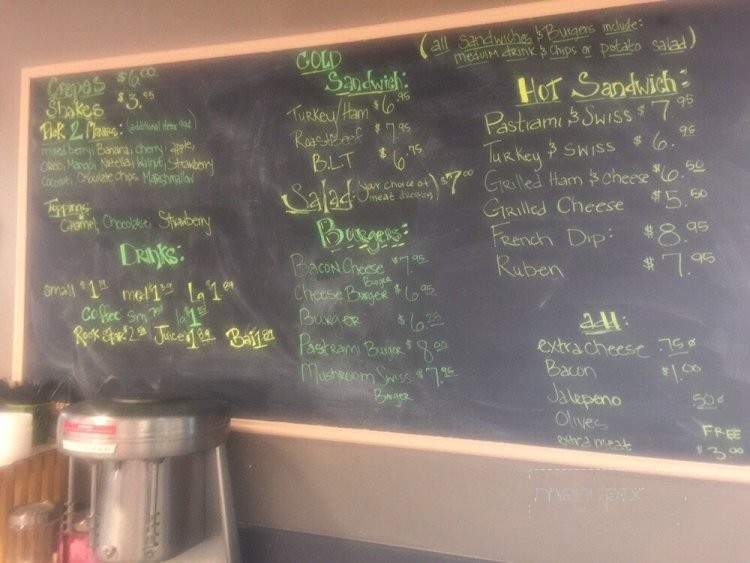 Crepes $6.00
Shakes $3.95
Pick 2 Mixins: (additional items
mixed berry, Banana, cherry, apple,
Oreo, Mango, Nutella, Walnut, Strawberry
Coconut, Chocolate chips, Marshmallow
Toppings:
Caramel, Chocolate, Strawberry
Drinks:
small $1 med $1 La $1
Coffee Sm La $1
Rock Star $2 Juice $1
COLD
Sandwich:
Turkey/Ham $6.95
Roast Beef $7.95
B.L.T $6.75
Salad: (your choice of meat dressing) $7.00
Burgers:
Bacon Cheese Burger $7.95
Cheese Burger $6.95
Burger $6.25
Pastrami Burger $8.00
Mushroom Swiss Burger $7.95
(all Sandwiches & Burgers include:
meduim drink & chips or potato salad)
Hot Sandwich:
Pastrami & Swiss $7.95
Turkey & Swiss $6.95
Grilled Ham & Cheese $6.50
Grilled Cheese $5.50
French Dip: $8.95
Ruben $7.95
add:
extra cheese .75¢
Bacon $1.00
Jalepeno 50¢
Olives FREE
extra meat $3.00